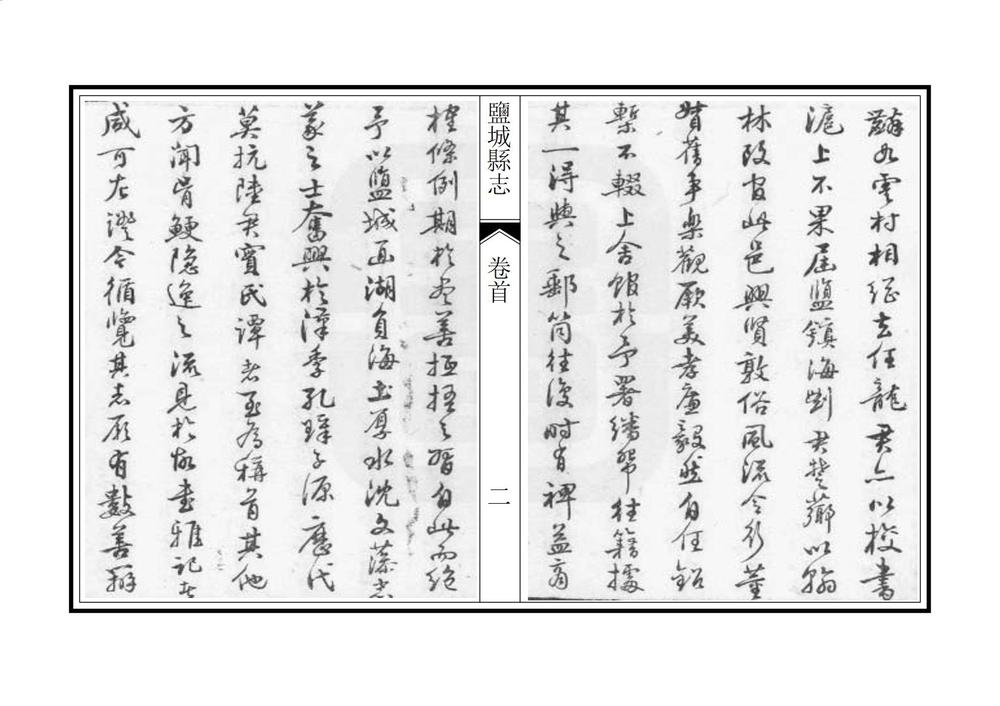 雲村相繼去任龍君亦以校書
滬上不果屆監鎮海劉君楚薌以翰
林改官此邑興賢敦俗風流令行董
舊事樂觀厥美孝廉毅然自任鉛
槧不輟上舍館於予署繙帑往籍據
其一得與之郵筒往復時有裨益商
榷條例期於盡善抵捂之習自此而絕
鹽城縣志
卷首
二
予以鹽城面湖負海土厚水沈文藻忠
義之士奮興於漳季孔璋子源歷代
莫抗陸君實氏譚者至為稱首其他
方聞骨鯁隱逸之流見於故書雅記者
咸可左證今循覽其志願有數善辭